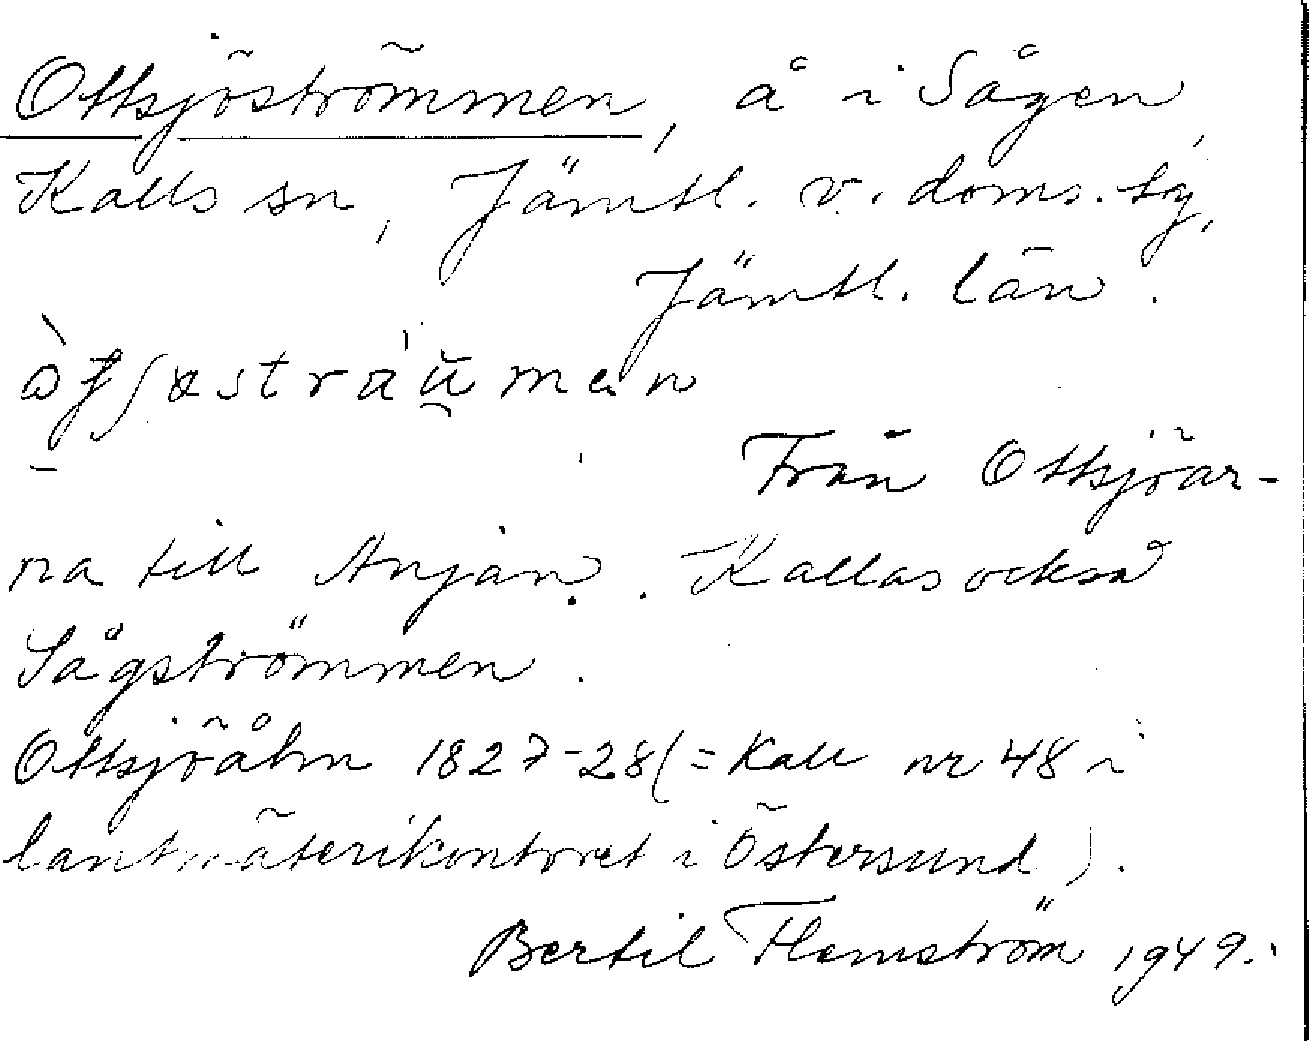 Ottsjöströmmen, å i Sågen,
Kalls sn, Jämtl. v. doms. sg,
Jämtl. län.
Från Ottsjöar-
na till Anjan. Kallas också
Sågströmmen.
Ottsjöåhn 1827-28 (= Kall nr 48 i
lantmäterikontoret i Östersund).
Bertil Flemström 1949.